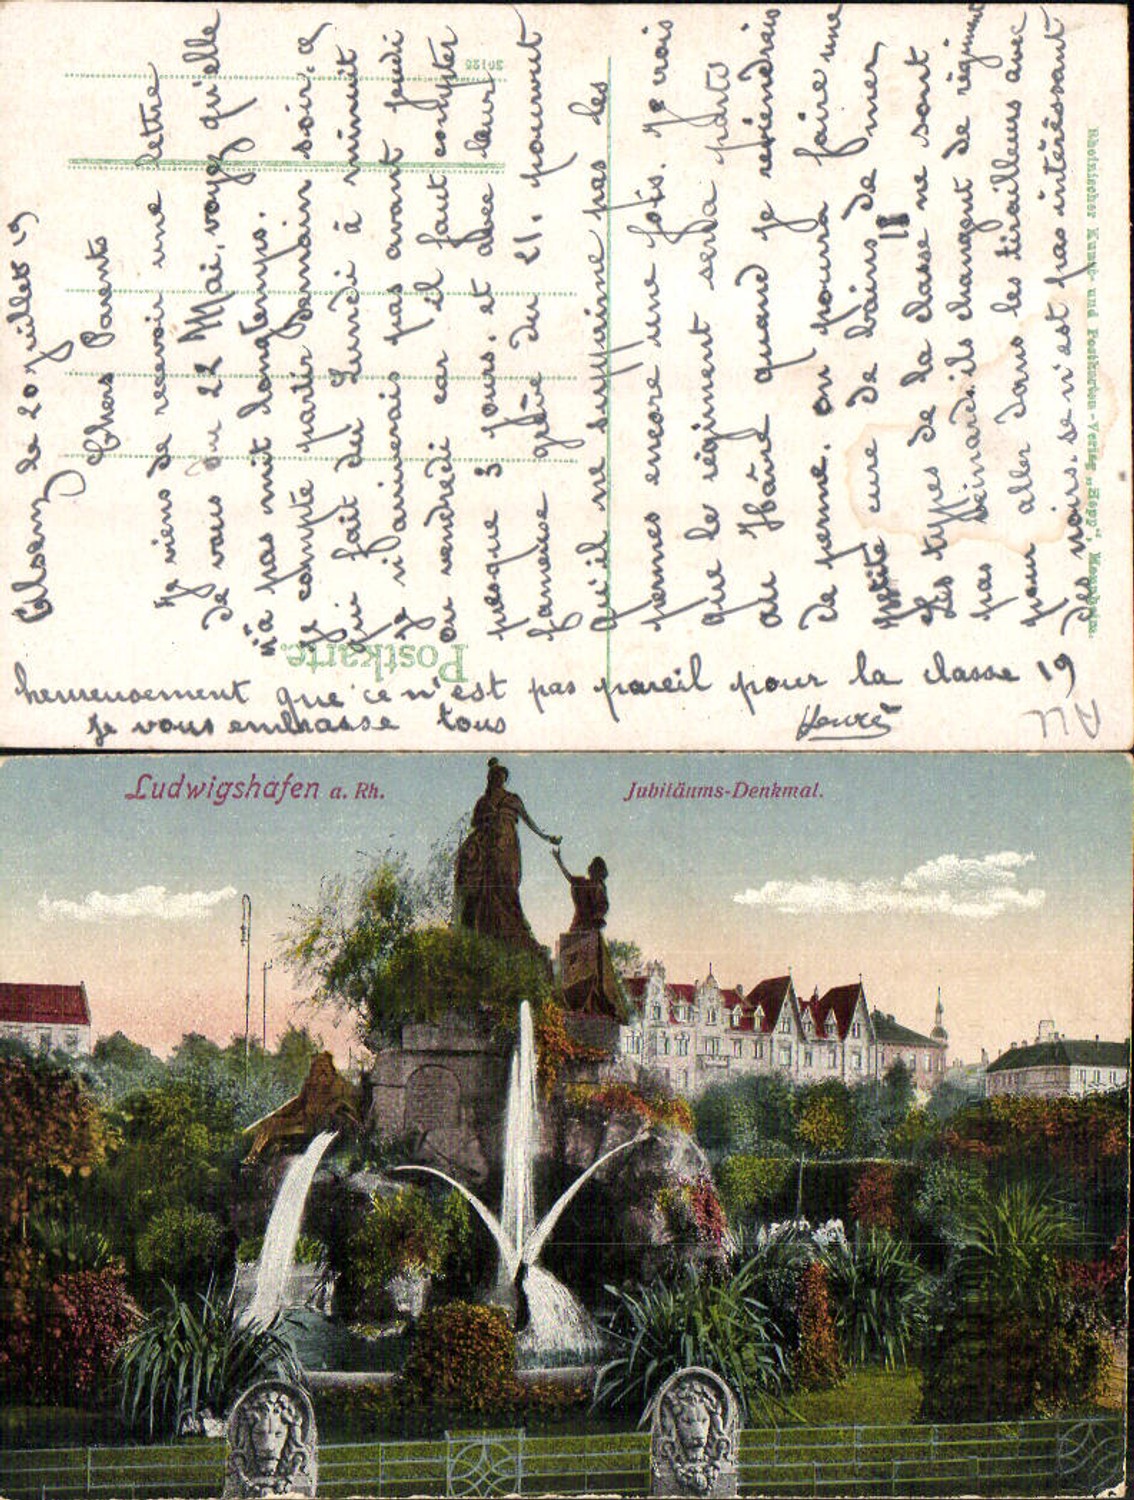 Alsenz le 20 Juillet 19
Chers Parents
Je viens de recevoir une lettre
de vous du 22 Mai, voyez qu'elle
n'a pas mit longtemps.
Je compte partir Demain soir. ce
qui fait du Lundi à minuit
je n'arriverais pas avant jeudi
ou vendredi car il faut compter
presque 3 jours. et avec leur
fameuse grève du 21. pourvut
qu'il ne supprime pas les
permes encore une fois. Je crois
que le régiment sera parti
au Hâvre quand je reviendrais
de perme. on pourra faire une
petite cure de bains de mer,
Les types de la classe 18 ne sont
pas veinards. ils changent de régiment
pour aller dans les tirailleurs avec
des noirs. se n'est pas intéressant
heureusement que ce n'est pas pareil pour la classe 19
Je vous embrasse tous
Postkarte.
30125
Rheinischer Kunst- und Postkarten-Verlag „Hepp“, Mannheim.
ALL
Ludwigshafen a. Rh.
Jubiläums-Denkmal.